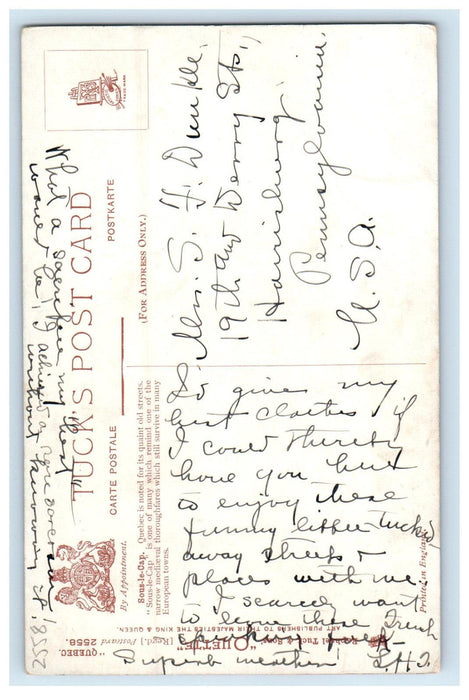 TUCK'S POST CARD
CARTE POSTALE
POSTKARTE
(FOR ADDRESS ONLY.)
By Appointment.
Sous-le-Cap. Quebec is noted for its quaint old streets.
"Sous-le-Cap" is one of many which remind one of the
narrow medieval thoroughfares which still survive in many
European towns.
Mrs. S. F. Dunkle.
19th and Derry Sts.,
Harrisburg
Pennsylvania.
U.S.A.
I'd give my
best clothes if
I could thereby
have you here
to enjoy these
funny little tucked
away streets &
places with me.
I scarcely want
to leave these French
speaking
Superb weather!
What a sacrifice my "best"
would be! I achieved a
without knowing it!
Raphael Tuck & Sons' "OILETTE"
[Regd.] Postcard 2558.
"QUEBEC."
ART PUBLISHERS TO THEIR MAJESTIES THE KING & QUEEN.
Printed in England.